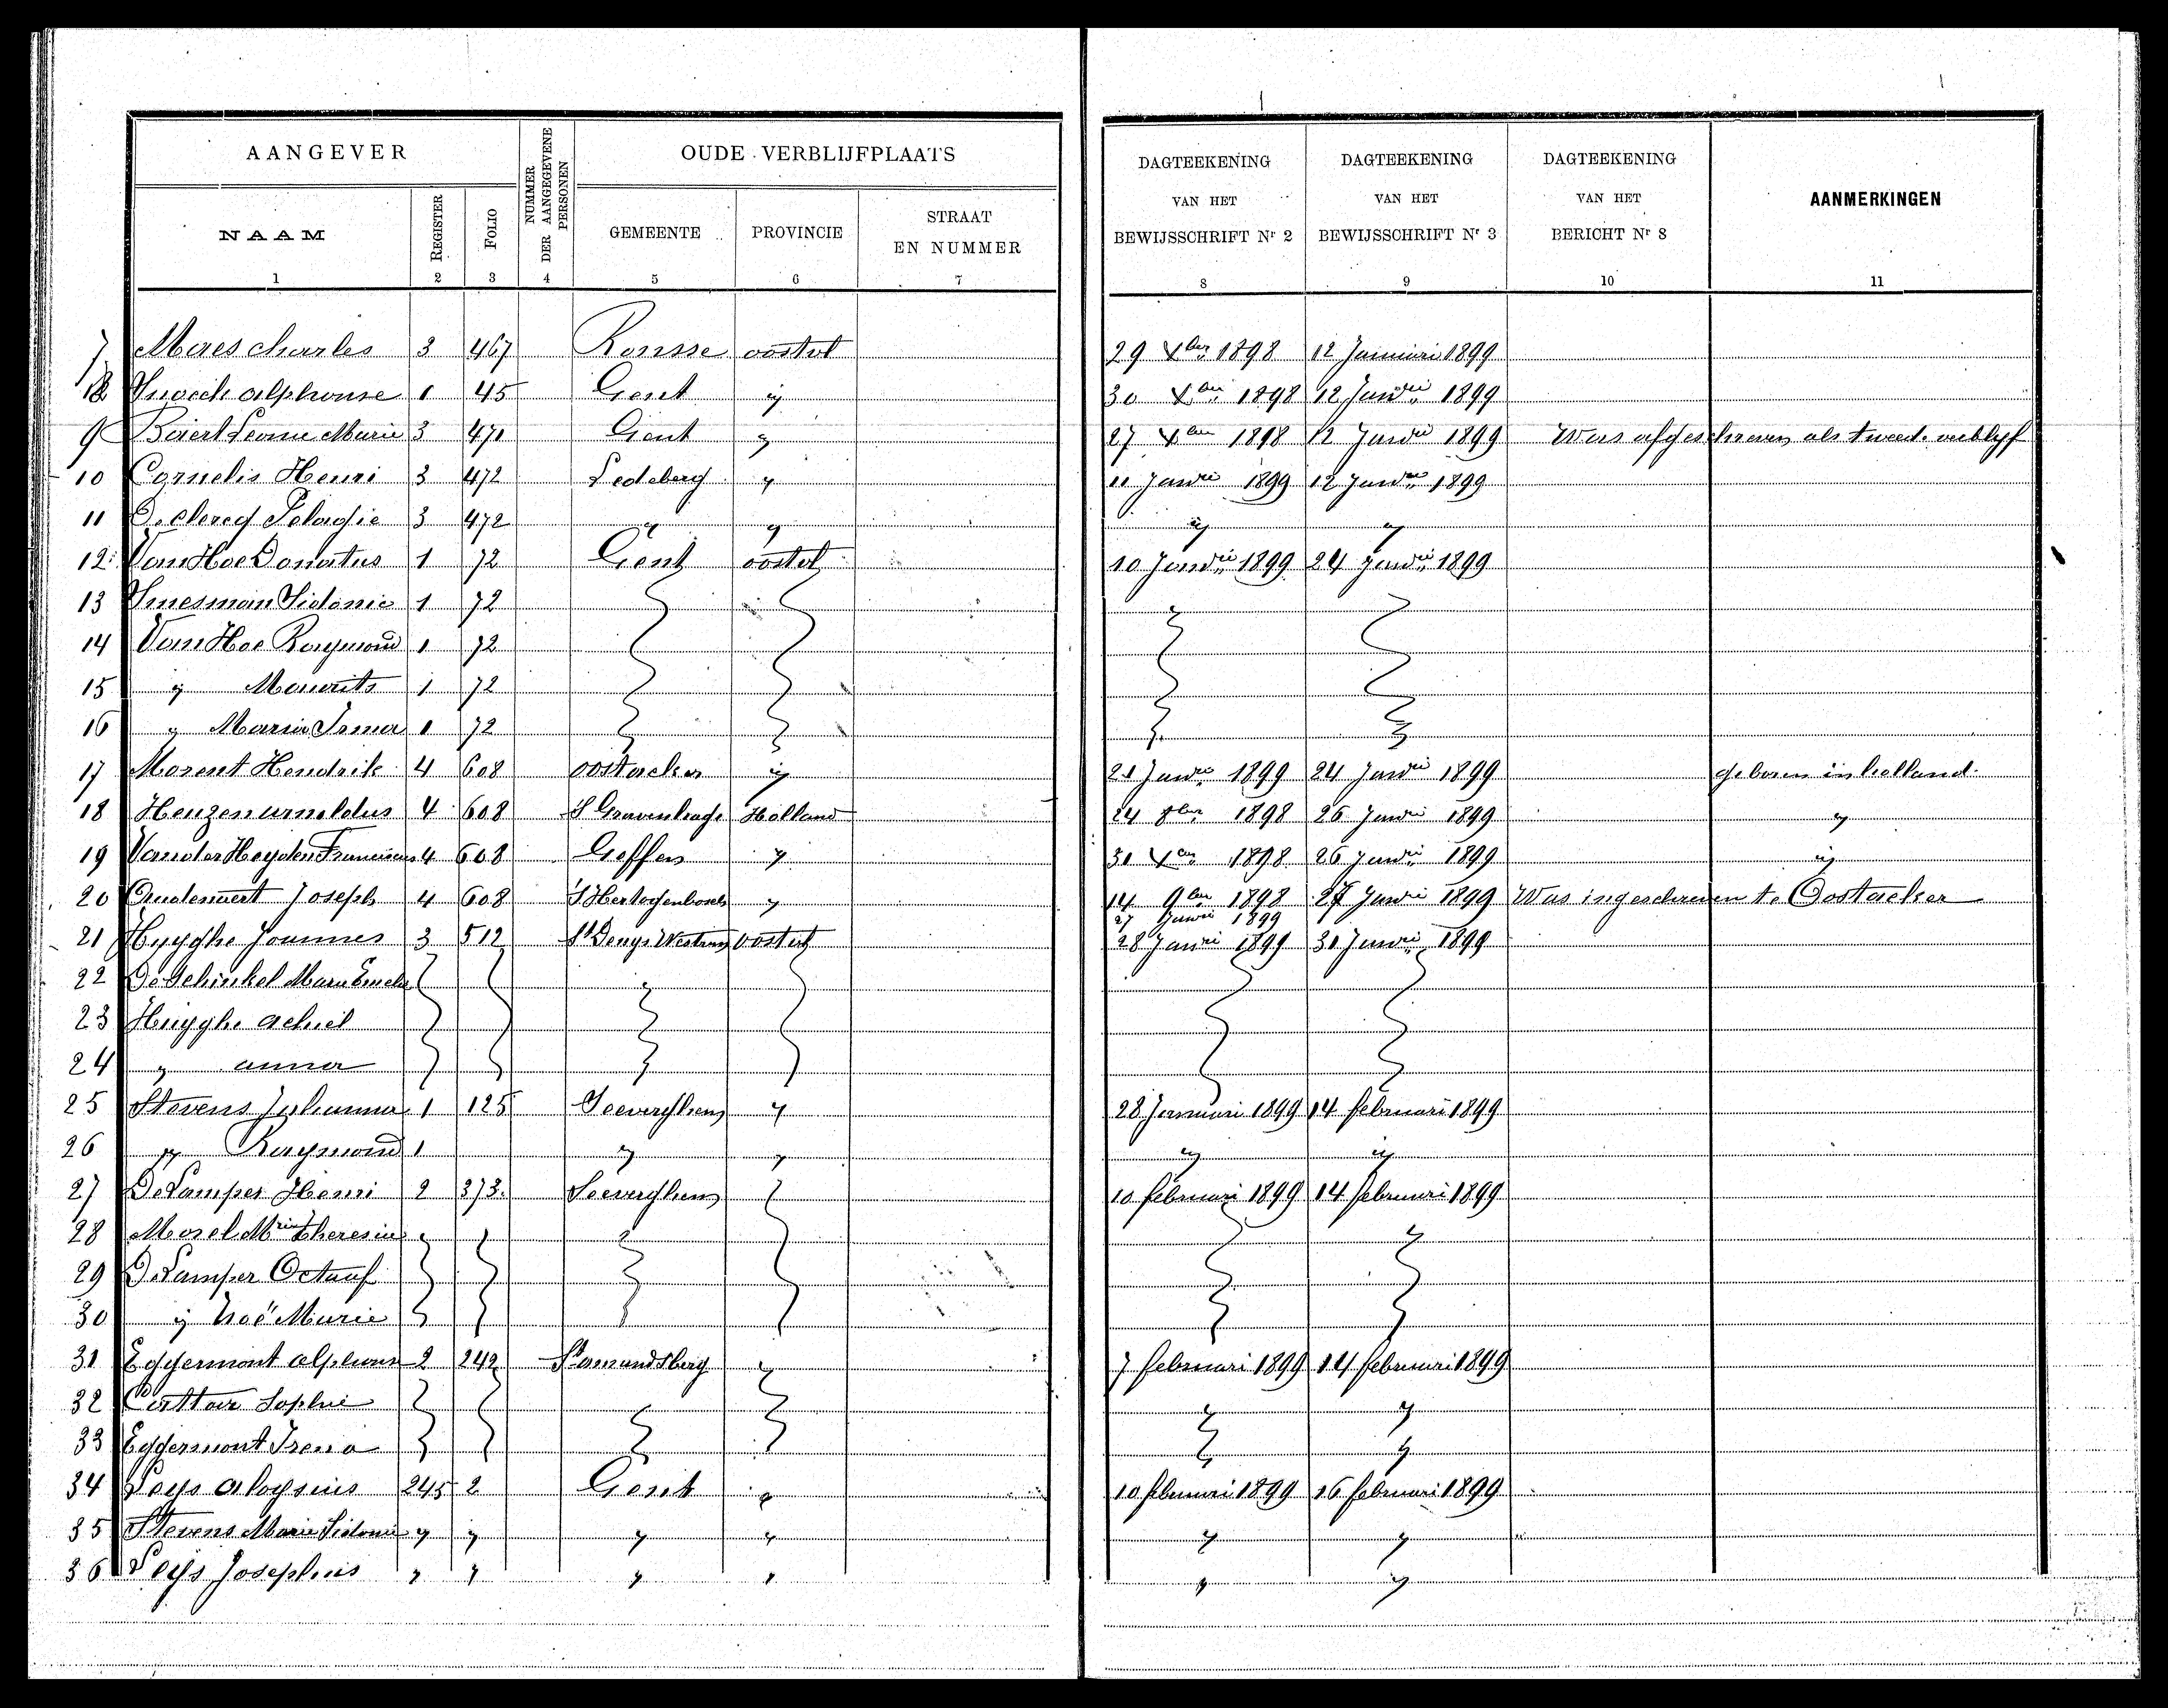 AANGEVER
NUMMER DER AANGEGEVENE PERSONEN
OUDE VERBLIJFPLAATS
DAGTEEKENING VAN HET BEWIJSSCHRIFT Nr 2
DAGTEEKENING VAN HET BEWIJSSCHRIFT Nr 3
DAGTEEKENING VAN HET BERICHT Nr 8
AANMERKINGEN
NAAM
REGISTER
FOLIO
GEMEENTE
PROVINCIE
STRAAT EN NUMMER
1 2 3 4 5 6 7 8 9 10 11
7 Maes Charles 3 467 Ronsse oostvl 29 Xber 1898 12 Januari 1899
8 alphonse 1 45 Gent ij 30 Xber 1898 12 Janrii 1899
9 Leonie Marie 3 471 Gent ij 27 Xber 1898 12 Janrii 1899 Was afgeschreven als tweed. verblyf
10 Cornelis Henri 3 472 Ledeberg y 11 Janrii 1899 12 Janrii 1899
11 De Clercq Pelagie 3 472 y y ij y
12 Van Hoe Donatus 1 72 Gent oostvl 10 Janrii 1899 24 Janrii 1899
13 Sidonie 1 72
14 Van Hoe Raymond 1 72
15 ij Maurits 1 72
16 y Maria Irma 1 72
17 Morent Hendrik 4 608 oostacker ij 21 Janrii 1899 24 Janrii 1899 geboren in holland.
18 Heuzen arnoldus 4 608 S Gravenhage Holland 24 8ber 1898 26 Janrii 1899 y
19 Vander Heyden Franciscus 4 608 Geffen y 31 Xber 1898 26 Janrii 1899 ij
20 Oudenaert Joseph 4 608 S Hertogenbosch y 14 9ber 1898 27 Janrii 1899 Was ingeschreven te Oostacker
27 Janrii 1899
21 Huyghe Joannes 3 512 St Denys Westrem oostvl 28 Janri 1899 31 Janrii 1899
22 De Schinkel Maria
23 Huyghe achiel
24 y anna
25 Stevens Johanna 1 125 Seeverghem y 28 Januari 1899 14 februari 1899
26 y Raymond 1 y y ij ij
27 De Lamper Henri 2 373. Seeverghem 10 februari 1899 14 februari 1899
28 Morel Mrie Theresia
29 De Lamper Octaaf
30 ij Noë Marie
31 Eggermont alphons 2 242 St amandsberg y 7 februari 1899 14 februari 1899
32 Sophie
33 Eggermont Irena
34 Leys aloysius 245 2 Gent y 10 februari 1899 16 februari 1899
35 Stevens Marie Sidonie y y y y y y
36 Leys Josephus y y y y y y